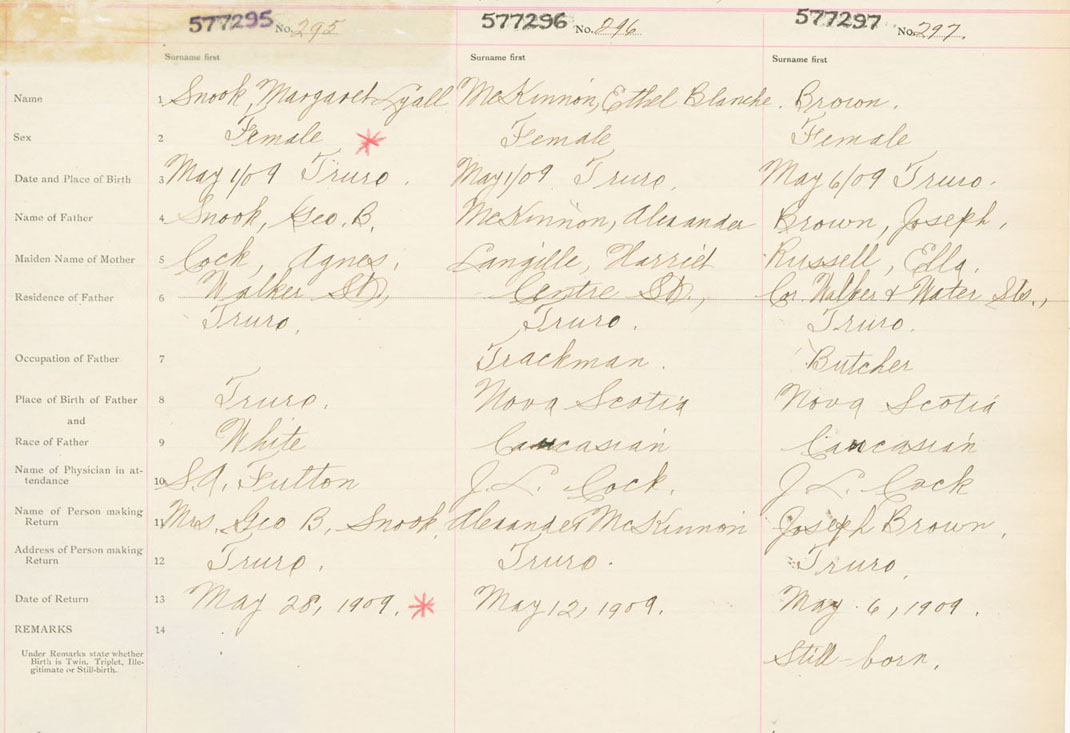 577295 No. 295 577296 No. 296 577297 No. 297.
Surname first Surname first Surname first
Name 1 Snook, Margaret Lyall McKinnon, Ethel Blanche. Brown.
Sex 2 Female * Female Female
Date and Place of Birth 3 May 1/09 Truro. May 1/09 Truro. May 6/09 Truro.
Name of Father 4 Snook, Geo. B. McKinnon, Alexander Brown, Joseph.
Maiden Name of Mother 5 Cock, Agnes. Langille, Harriet Russell, Ella.
Residence of Father 6 Walker St., Centre St., Cor. Walker & Water Sts.,
Truro. Truro. Truro.
Occupation of Father 7 Trackman. Butcher
Place of Birth of Father 8 Truro. Nova Scotia Nova Scotia
and
Race of Father 9 White Caucasian Caucasian
Name of Physician in at-
tendance 10 S.A. Fulton J. L. Cock. J. L. Cock
Name of Person making
Return 11 Mrs. Geo B. Snook Alexander McKinnon Joseph Brown.
Address of Person making
Return 12 Truro. Truro. Truro.
Date of Return 13 May 28, 1909. * May 12, 1909. May 6, 1909.
REMARKS 14
Under Remarks state whether
Birth is Twin, Triplet, Ille-
gitimate or Still-birth.
Still-born.